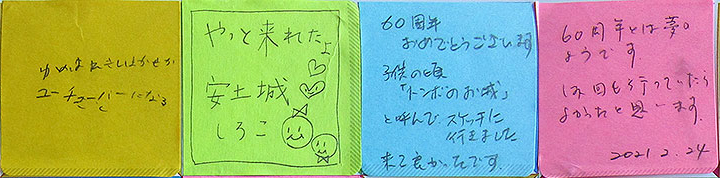 ゆめは
ユーチューバーになる
やっと来れたよ
安土城
しろこ
60周年
おめでとうございます
子供の頃
「トンボのお城」
と呼んで スケッチに
行きました
来て良かったです。
60周年とは夢の
ようです
回も行っていたら
よかったと思います。
2021.2.24